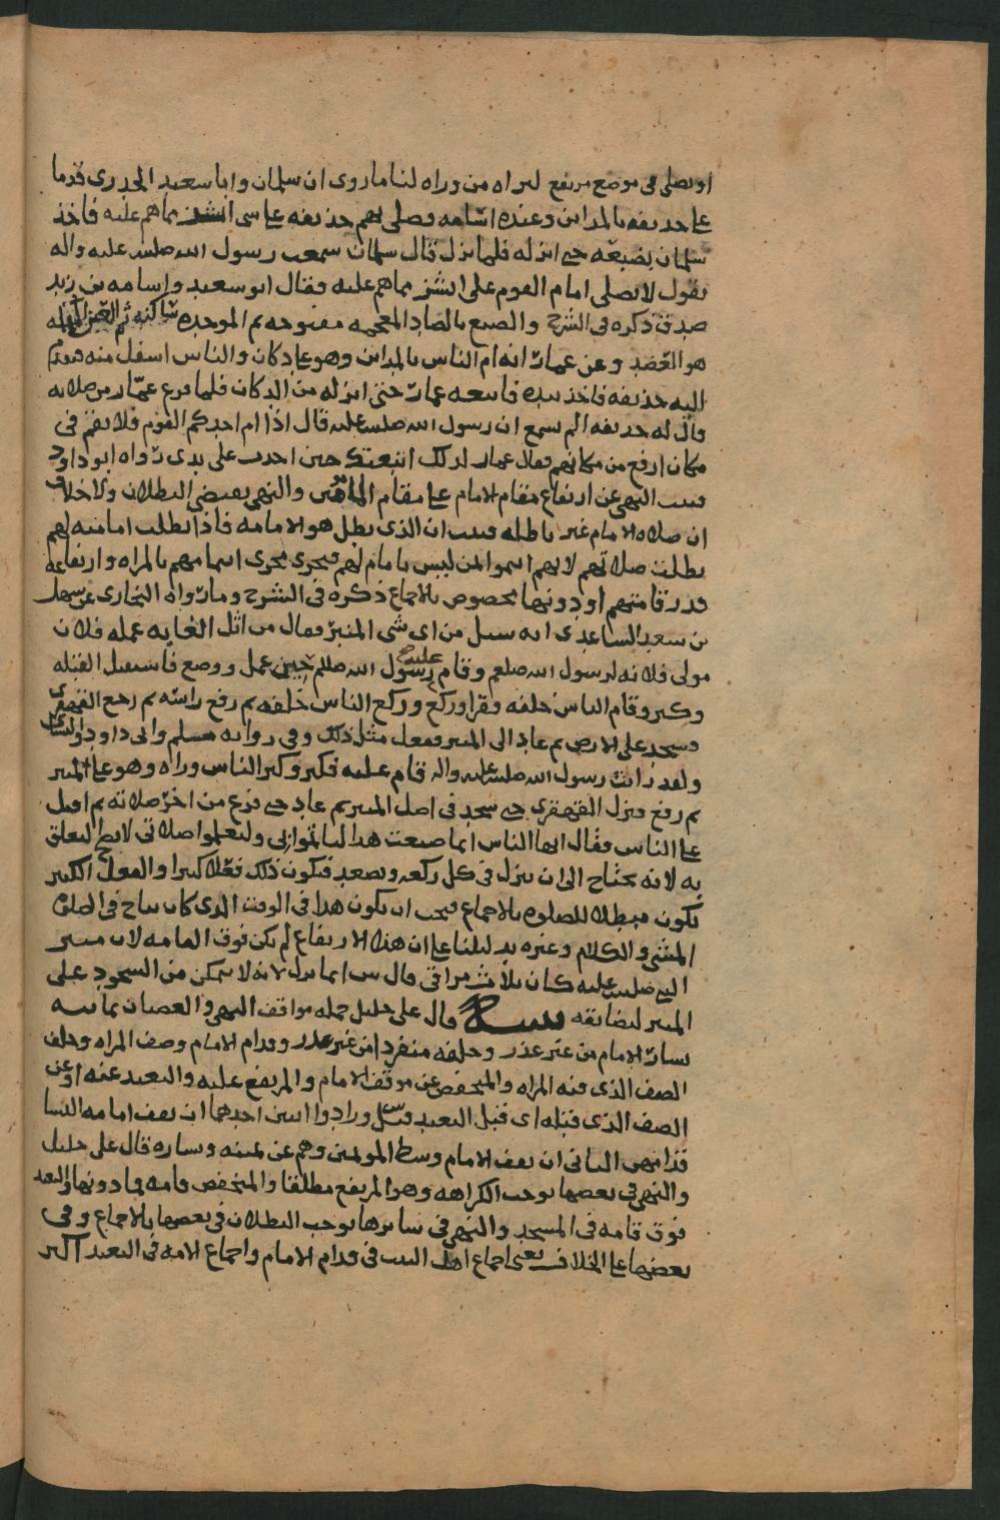 او يصلى فى موضع مرتفع ليراه من وراه لنا ما روى ان سلمان وابا سعيد الخدرى قدما
على حذيفه بالمداين وعنده اسامه فصلى بهم حذيفه على شى انشز مما هم عليه فاخذ
سلمان بضبعه حتى انزله فلما نزل قال سلمان سمعت رسول الله صلى الله عليه واله
يقول لا يصلى امام القوم على انشز مما هم عليه فقال ابو سعيد واسامه بن زيد
صدق ذكره فى الشرح والضبع بالضاد المعجمه مفتوحه ثم الموحده ساكنه ثم العين المهمله
هو العضد وعن عمار انه ام الناس بالمداين وهو على دكان والناس اسفل منه فتقدم
اليه حذيفه فاخذ بيده فاتبعه عمار حتى انزله من الدكان فلما فرغ عمار من صلاته
قال له حذيفه الم تسمع ان رسول الله صلى الله عليه قال اذا ام احدكم القوم فلا يقم فى
مكان ارفع من مكانهم فقال عمار لذلك اتبعتك حين اخذت على يدى رواه ابو داود
فثبت النهى عن ارتفاع مقام الامام على مقام والنهى يقتضى البطلان ولا خلاف
ان صلاه الامام غير باطله فثبت ان الذى بطل هو الامامه فاذا بطلت امامته لهم
بطلت صلاتهم لانهم ايتموا بمن ليس بامام لهم فجرى مجرى ايتمامهم بالمراه وارتفاعه
قدر قامتهم او دونها مخصوص بالاجماع ذكره فى الشرح وما رواه البخارى عن سهل
بن سعد الساعدى انه سيل من اى شى المنبر فقال من اثل الغابه عمله فلان
مولى فلانه لرسول الله صلعم وقام عليه رسول الله صللم حين عمل ووضع فاستقبل القبله
وكبر وقام الناس خلفه فقرا وركع وركع الناس خلفه ثم رفع راسه ثم رجع القهقرى
فسجد على الارض ثم عاد الى المنبر ففعل مثل ذلك وفى روايه مسلم وابى داود والنسائى
ولقد رايت رسول الله صلى الله عليه واله قام عليه فكبر وكبر الناس وراه وهو على المنبر
ثم رفع فنزل القهقرى حتى سجد فى اصل المنبر ثم عاد حتى فرغ من اخر صلاته ثم اقبل
على الناس فقال ايها الناس انما صنعت هذا لتاتموا بى ولتعلموا صلاتى لا يصح التعلق
به لانه يحتاج الى ان ينزل فى كل ركعه ويصعد فيكون ذلك فعلا كثيرا والفعل الكثير
يكون مبطلا للصلوه بالاجماع فيجب ان يكون هذا فى الوقت الذى كان يباح فى الصلوه
المشى والكلام وغيره بدليلنا على ان هذا الارتفاع لم يكن فوق القامه لان منبر
النبى صلى الله عليه كان ثلاث مراقى قال انما نزل لانه لا يتمكن من السجود على
المنبر لضايقه قال على خليل جمله مواقف النهى والعصيان ثمانيه
يسار الامام من غير عذر وخلفه منفردا من غير عذر وقدام الامام وصف المراه وخلف
الصف الذى فيه المراه والمنخفض عن موقف الامام والمرتفع عليه والبعيد عنه او عن
الصف الذى قبله اى قبل البعيد وزادوا اثنين احدهما ان يقف امامه النسا
قدامهن الثانى ان يقف الامام وسط المومنين وهم عن يمينه ويساره قال على خليل
والنهى فى بعضها يوجب الكراهه وهو المرتفع مطلقا والمنخفض قامه فما دونها والبعد
فوق قامه فى المسجد والنهى فى سايرها يوجب البطلان فى بعضها بالاجماع وفى
بعضها على الخلاف يعنى اجماع اهل البيت فى قدام الامام واجماع الامه فى البعيد اكثر